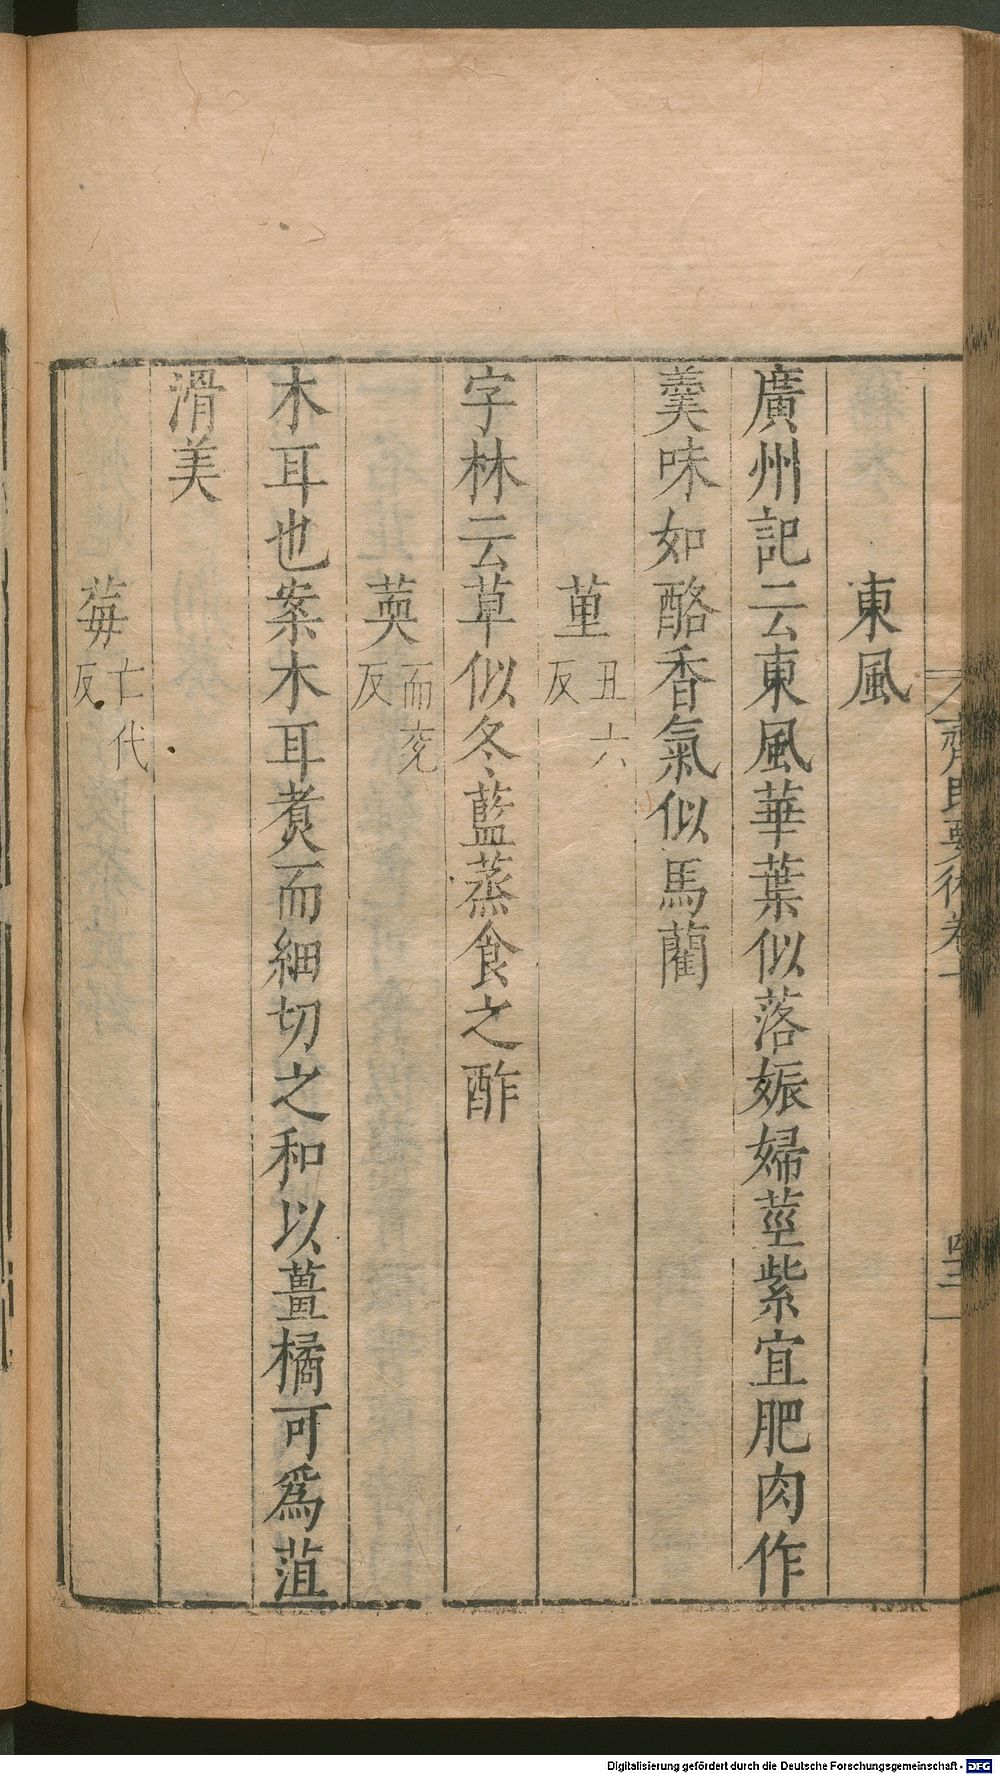 東風
廣州記云東風華葉似落娠婦莖紫宜肥肉作
羹味如酪香氣似馬藺
堇丑六反
字林云草似冬藍蒸食之酢
萸而兖反
木耳也案木耳煮而細切之和以薑橘可爲菹
滑美
莓亡代反
齊民要術卷十
四三
Digitalisierung gefördert durch die Deutsche Forschungsgemeinschaft - DFG